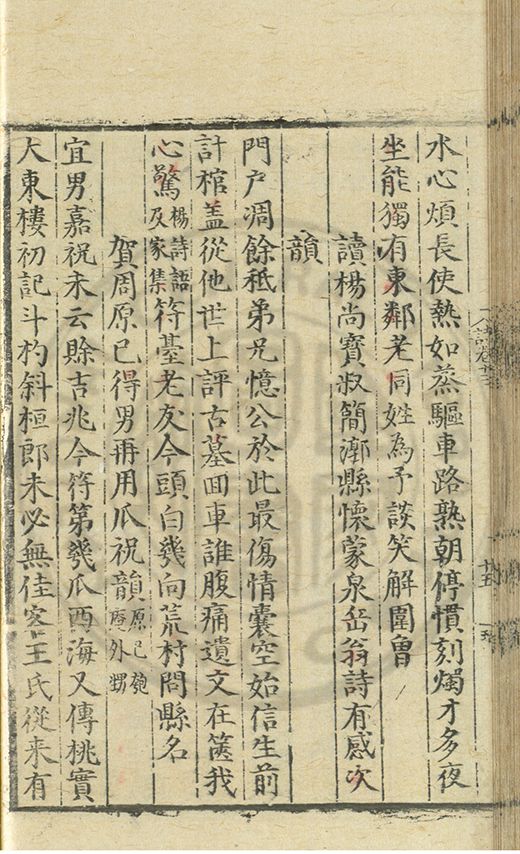 水心煩長使熱如蒸驅車路熟朝停慣刻燭才多夜
坐能獨有東鄰老同姓為予談笑解圍曾
讀楊尚寶叔簡漷縣懷蒙泉岳翁詩有感次
韻
門户凋餘秪弟兄憶公於此最傷情囊空始信生前
計棺盖從他世上評古墓囬車誰腹痛遺文在篋我
心驚楊詩語及家集符臺老友今頭白幾向荒村問縣名
賀周原已得男再用瓜祝韻原已匏壓外甥
宜男嘉祝未云賒吉兆今符第幾瓜西海又傳桃實
大東樓初記斗杓斜桓郎未必無佳客王氏從来有
廿五